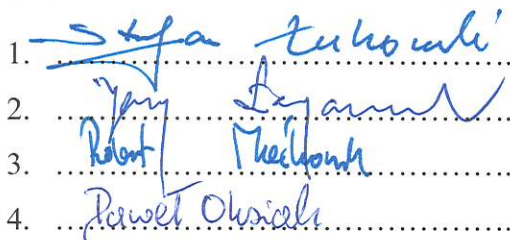 1. Stefan Żukowski
2. Jerzy
3. Robert
4. Paweł Olusiak